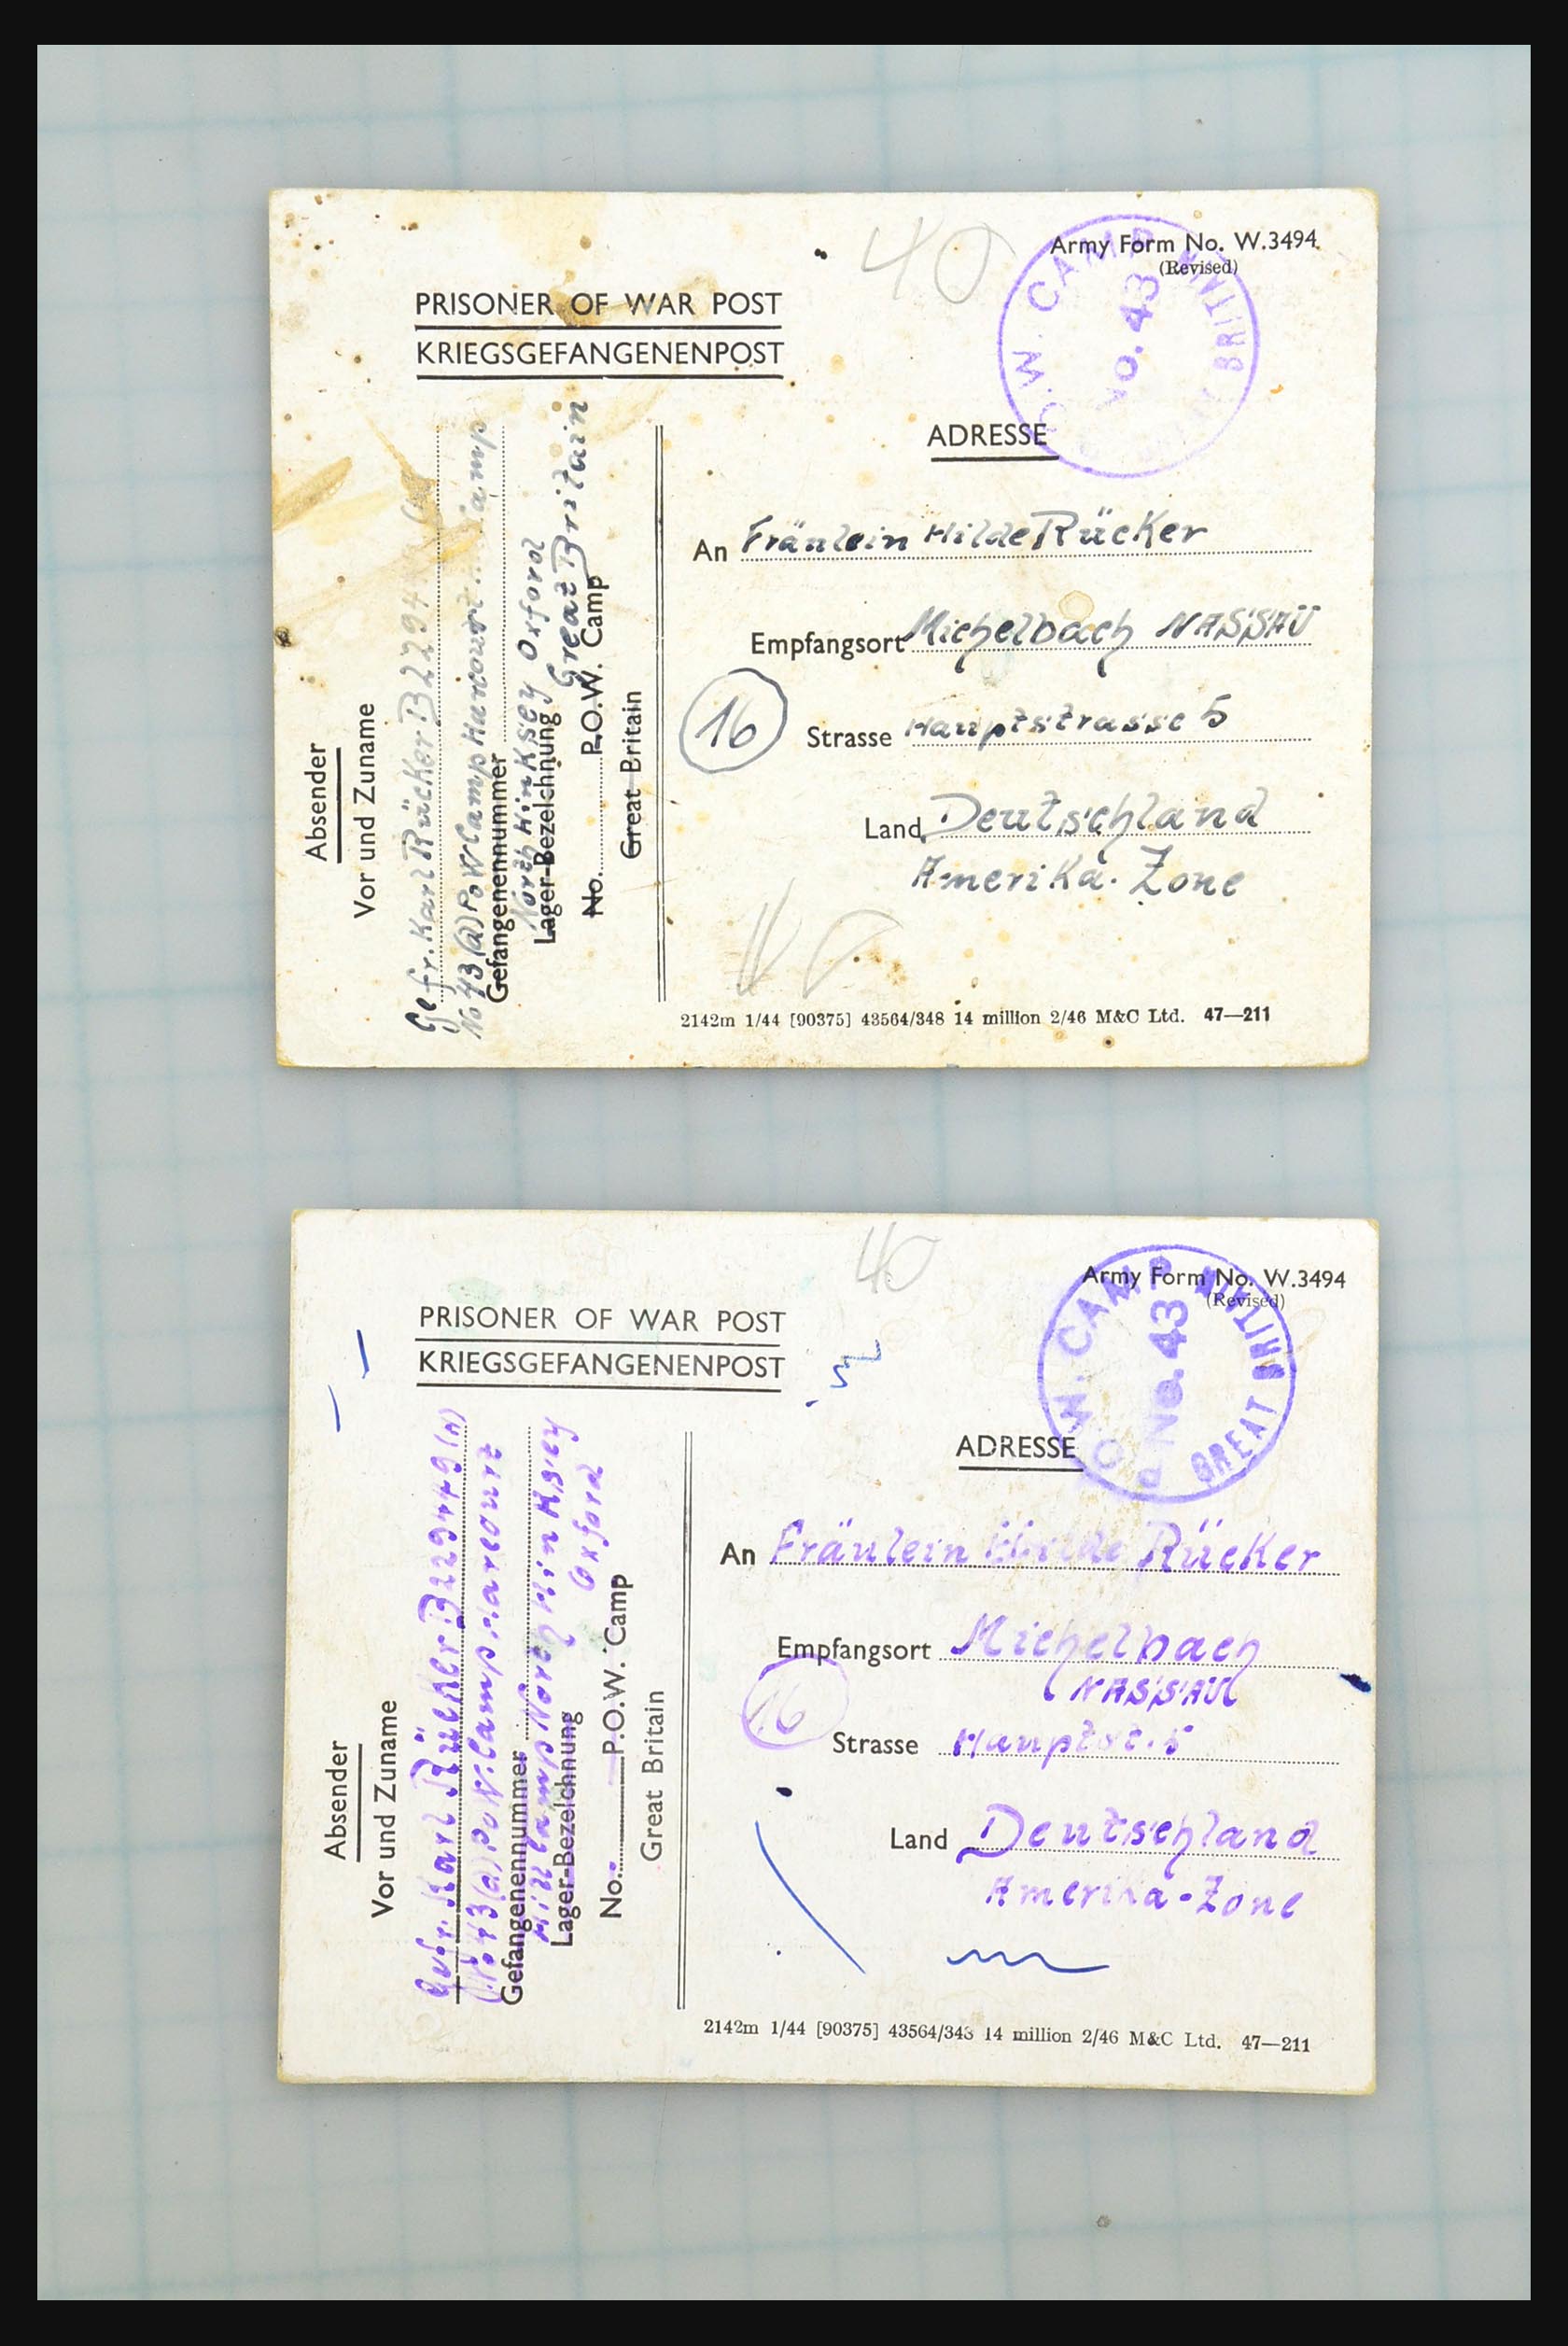 40
Army Form No. W.3494
(Revised)
P.O.W. CAMP No. 43 GREAT BRITAIN
PRISONER OF WAR POST
KRIEGSGEFANGENENPOST
ADRESSE
An Fräulein Hilde Rücker
Empfangsort Michelbach NASSAU
16
Strasse Hauptstrasse 5
Land Deutschland
Amerika-Zone
2142m 1/44 [90375] 43564/348 14 million 2/46 M&C Ltd. 47—211
Absender
Vor und Zuname
Gefr. Karl Rücker B2294
No 43 (a) PoW Camp Harcourt
Gefangenennummer
North Hinksey Oxford
Lager-Bezeichnung
Great Britain
No. P.O.W. Camp
Great Britain
40
Army Form No. W.3494
(Revised)
P.O.W. CAMP No. 43 GREAT BRITAIN
PRISONER OF WAR POST
KRIEGSGEFANGENENPOST
ADRESSE
An Fräulein Hilde Rücker
Empfangsort Michelbach
NASSAU
16
Strasse Hauptst. 5
Land Deutschland
Amerika-Zone
2142m 1/44 [90375] 43564/348 14 million 2/46 M&C Ltd. 47—211
Absender
Vor und Zuname
Gefr. Karl Rücker B229449 (A)
No 43 (a) PoW. Camp Harcourt
Gefangenennummer
Hill Camp North Hinksey
Lager-Bezeichnung
Oxford
No. P.O.W. Camp
Great Britain